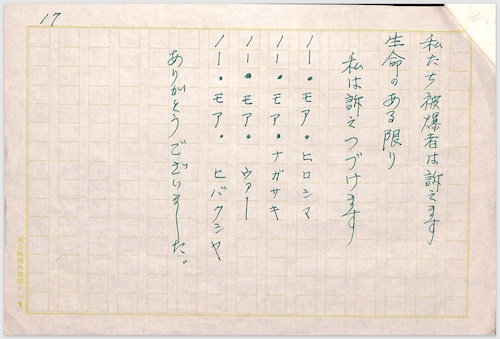 17
私たち被爆者は訴えます
生命のある限り
私は訴えつづけます
ノー・モア・ヒロシマ
ノー・モア・ナガサキ
ノー・モア・ウァー
ノー・モア・ヒバクシャ
ありがとうございました。